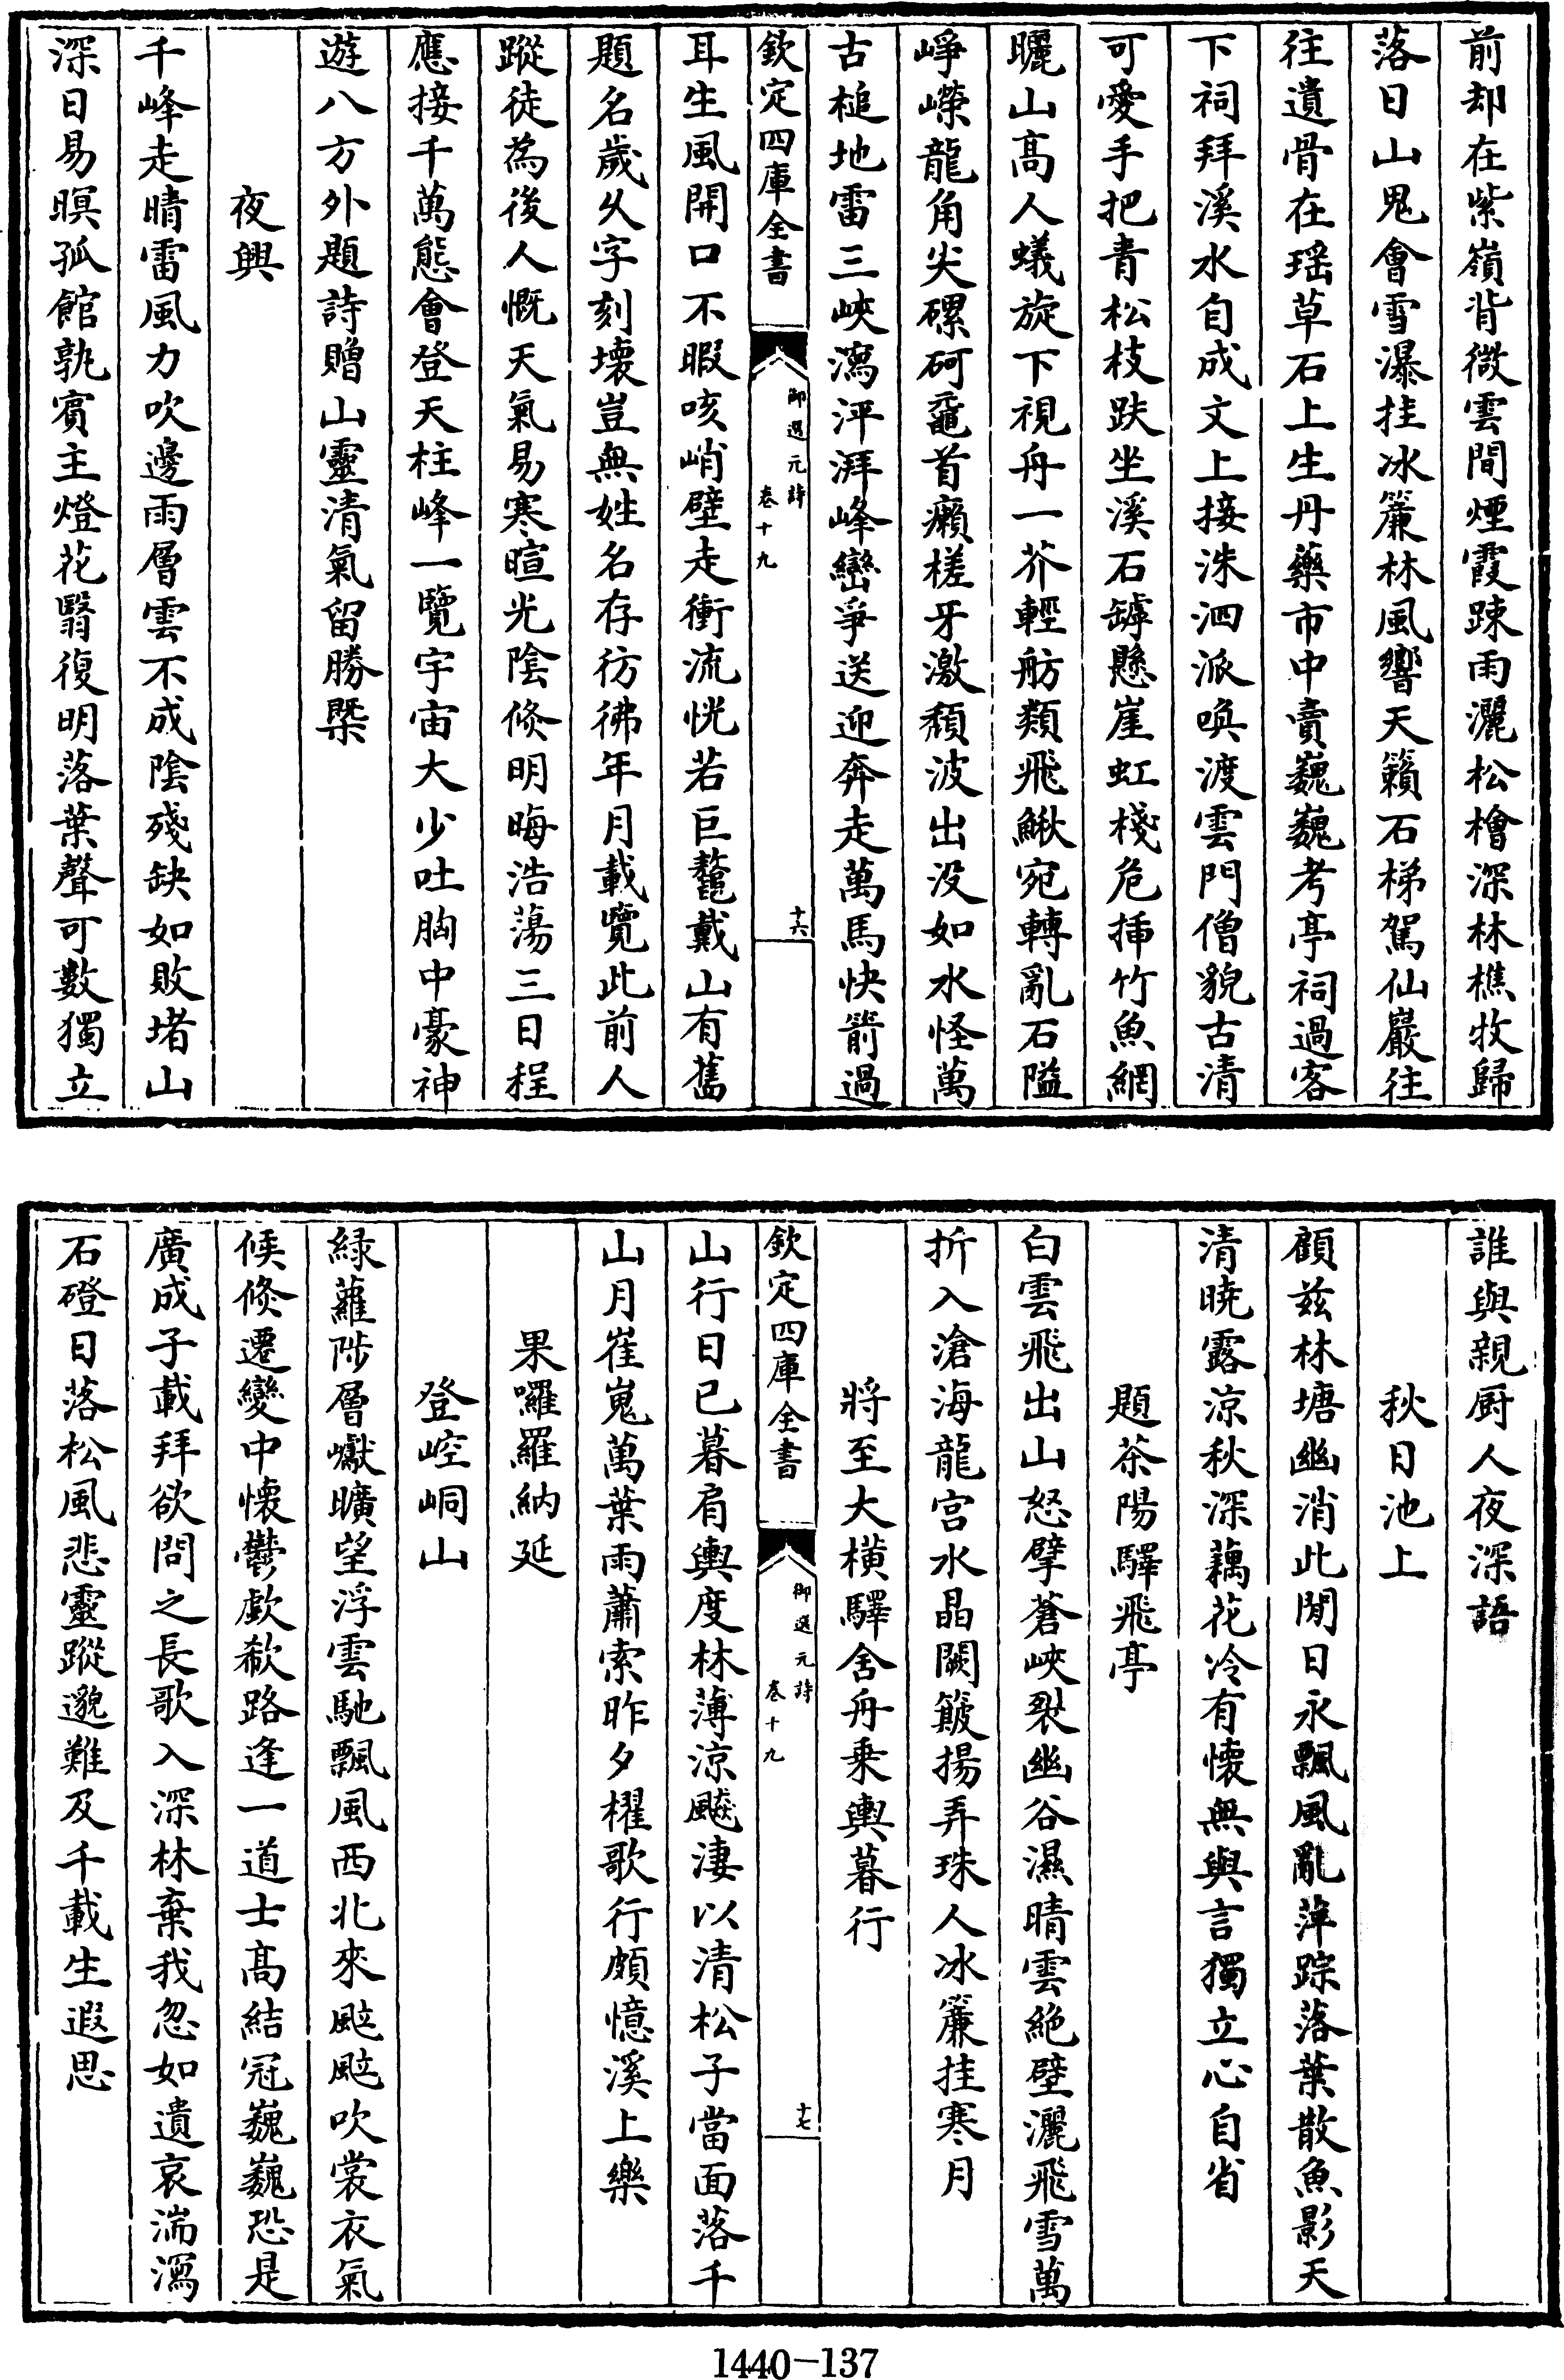 前却在紫嶺背微雲間煙霞踈雨灑松檜深林樵牧歸
落日山鬼會雪瀑挂冰簾林風響天籟石梯駕仙巖往
往遺骨在瑶草石上生丹藥市中賣巍巍考亭祠過客
下祠拜溪水自成文上接洙泗派喚渡雲門僧貌古清
可愛手把青松枝趺坐溪石罅懸崖虹棧危挿竹魚網
曬山髙人蟻旋下視舟一芥輕舫類飛鰍宛轉亂石隘
崢嶸龍角尖磥砢黿首癩槎牙激頽波出没如水怪萬
古槌地雷三峽瀉泙湃峰巒爭送迎奔走萬馬快箭過
欽定四庫全書
御選元詩
卷十九
十六
耳生風開口不暇咳峭壁走衝流恍若巨鼇戴山有舊
題名歲乆字刻壊豈無姓名存彷彿年月載覽此前人
蹤徒為後人慨天氣易寒暄光陰倐明晦浩蕩三日程
應接千萬態會登天柱峰一覽宇宙大少吐胸中豪神
遊八方外題詩贈山靈清氣留勝槩
夜興
千峰走晴雷風力吹邊雨層雲不成陰殘缺如敗堵山
深日易暝孤館孰賓主燈花翳復明落葉聲可數獨立
誰與親厨人夜深語
秋日池上
顧兹林塘幽消此閒日永飄風亂萍踪落葉散魚影天
清曉露凉秋深藕花冷有懐無與言獨立心自省
題茶陽驛飛亭
白雲飛出山怒擘蒼峽裂幽谷濕晴雲絶壁灑飛雪萬
折入滄海龍宫水晶闕簸揚弄珠人冰簾挂寒月
將至大横驛舍舟乗輿暮行
欽定四庫全書
御選元詩
卷十九
十七
山行日已暮肩輿度林薄凉飈淒以清松子當面落千
山月崔嵬萬葉雨蕭索昨夕櫂歌行頗憶溪上樂
果囉羅納延
登崆峒山
緑蘿陟層巘曠望浮雲馳飄風西北來颭颭吹裳衣氣
候倐遷變中懐鬱歔欷路逢一道士髙結冠巍巍恐是
廣成子載拜欲問之長歌入深林棄我忽如遺哀湍瀉
石磴日落松風悲靈蹤邈難及千載生遐思
1440-137